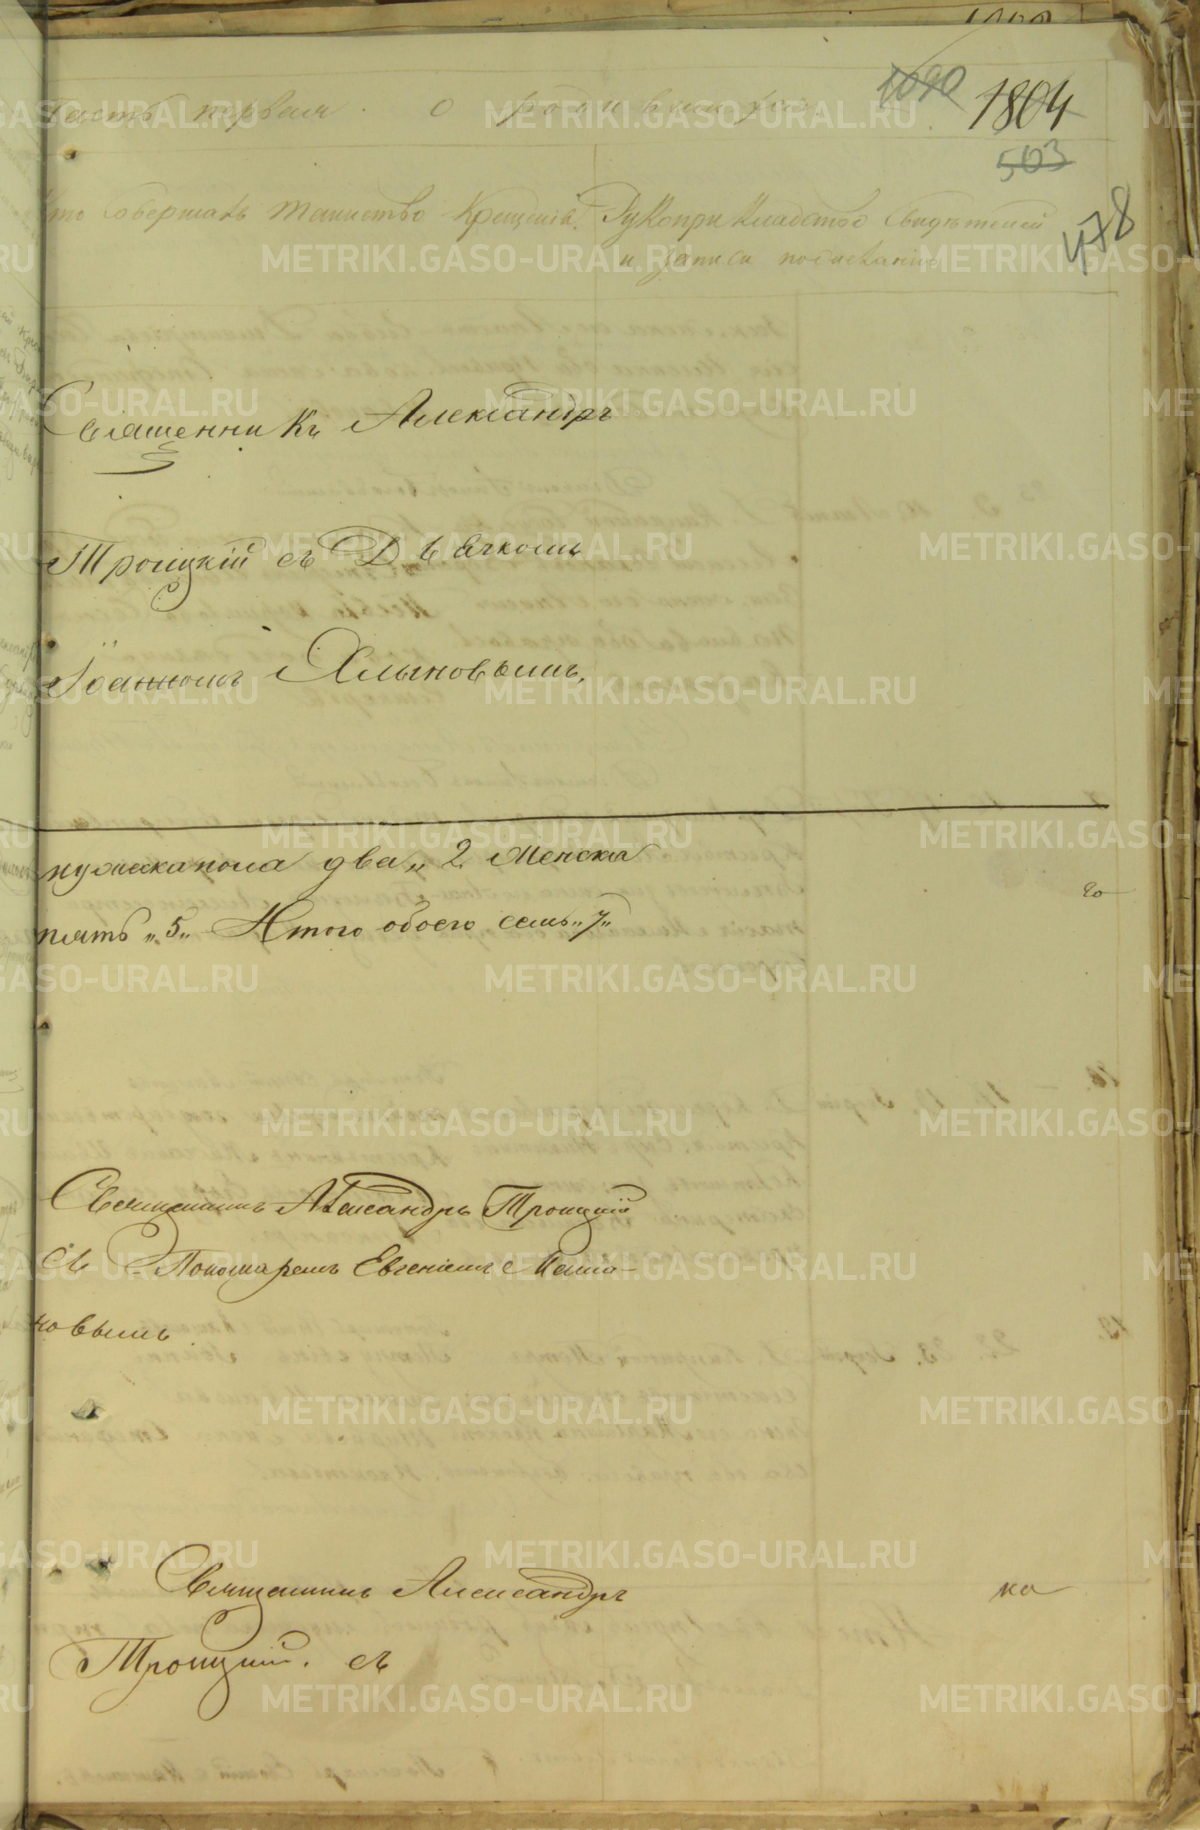 Часть первая о родившихся
1090 1804
503
478
Кто совершалъ таинство Крещенія. Рукоприкладство свидетелей
и записи по желанію
Священникъ Александръ
Троицкій съ Дьячкомъ
Іоанномъ Хлыновымъ.
мужска пола два „2 Женска
го
пять „5„ Итого обоего семь „7„
Священникъ Александръ Троицкій
съ Пономаремъ Евгеніемъ
ковымъ
Священникъ Александръ
ка
Троицкій. съ
METRIKI.GASO-URAL.RU